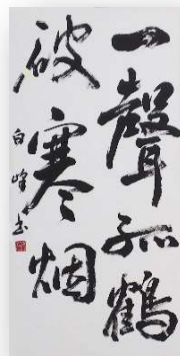 一聲孤鶴
破寒烟
白峰书